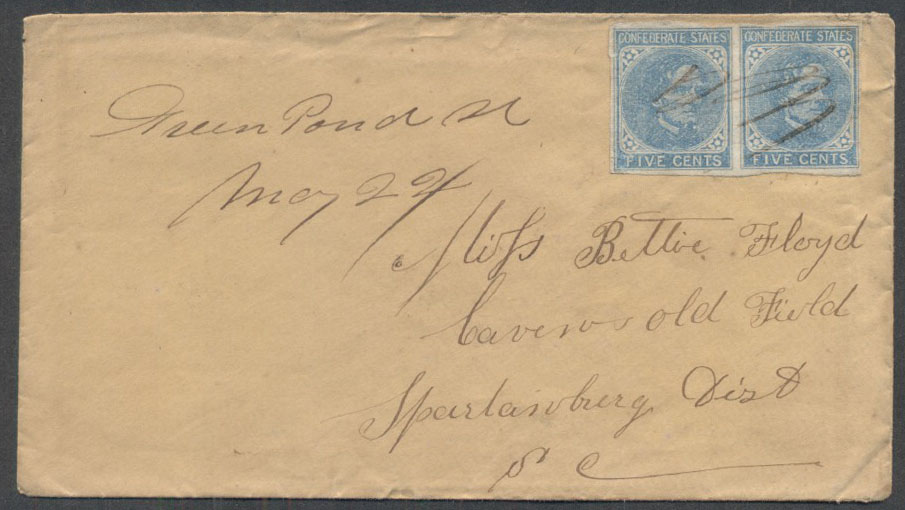 CONFEDERATE STATES CONFEDERATE STATES
FIVE CENTS FIVE CENTS
Green Pond
May 22
Miss Bettie Floyd
old Field
Spartanburg Dist
S C